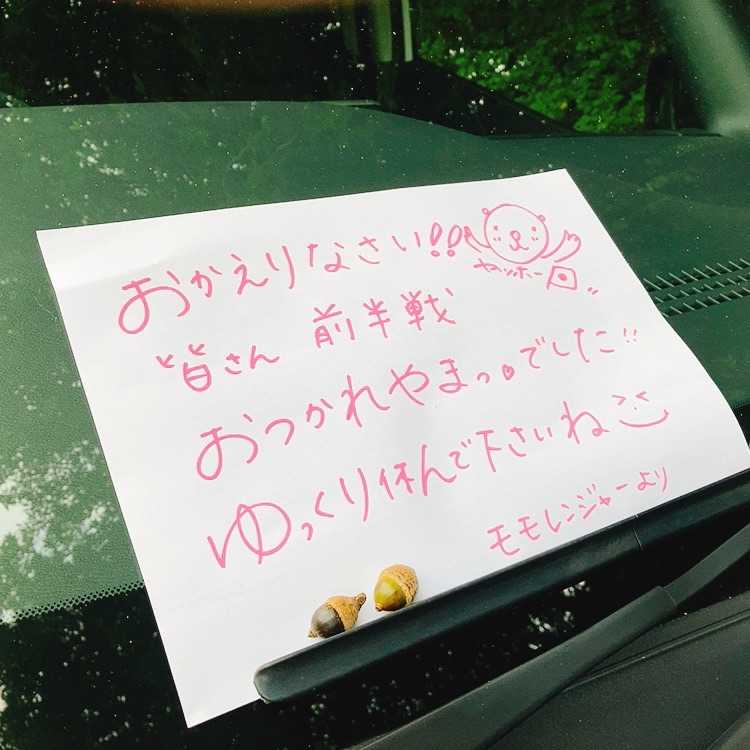 おかえりなさい!!
ヤッホー
皆さん 前半戦
おつかれやまっ。でした!!
ゆっくり休んで下さいね
モモレンジャーより